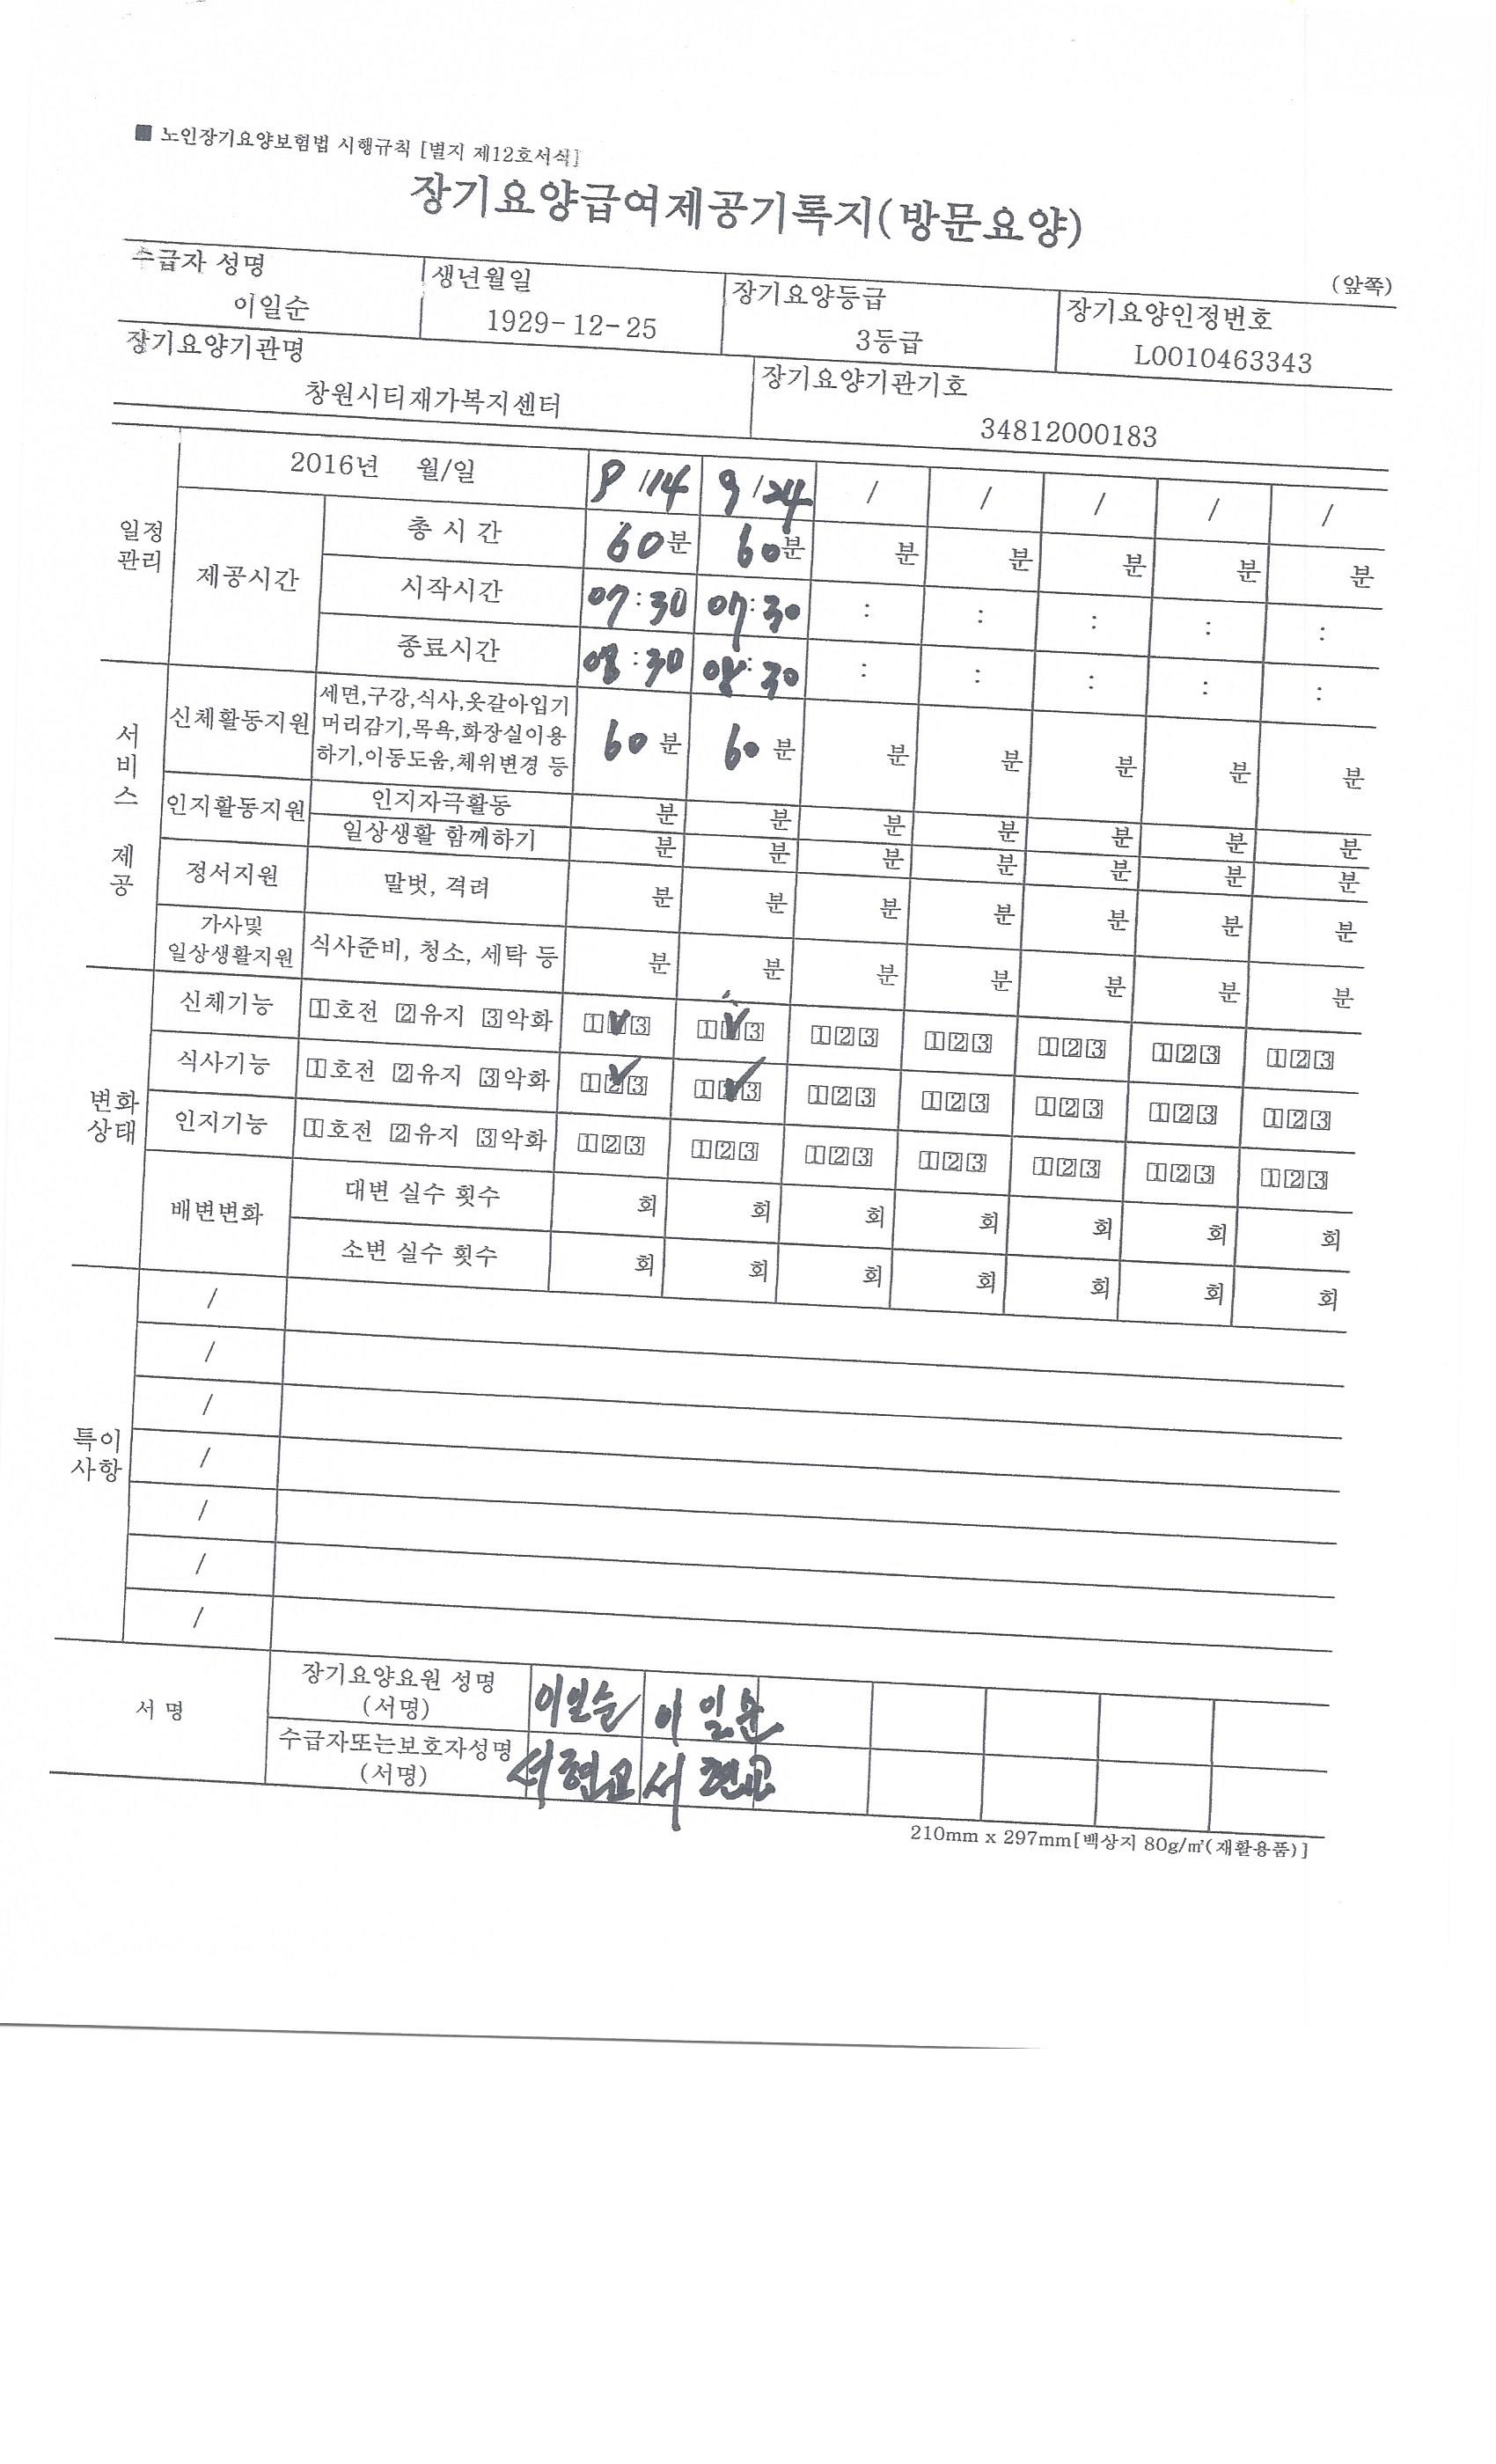 ■ 노인장기요양보험법 시행규칙 [별지 제12호서식]
장기요양급여제공기록지(방문요양)
(앞쪽)
수급자 성명 생년월일 장기요양등급 장기요양인정번호
이일순 1929-12-25 3등급 L0010463343
장기요양기관명 장기요양기관기호
창원시티재가복지센터 34812000183
일정
관리
2016년 월/일 8/14 9/24 / / / / /
제공시간
총 시 간 60분 60분 분 분 분 분 분
시작시간 07:30 07:30 : : : : :
종료시간 08:30 08:30 : : : : :
서
비
스
제
공
신체활동지원
세면,구강,식사,옷갈아입기
머리감기,목욕,화장실이용
하기,이동도움,체위변경 등
60분 60분 분 분 분 분 분
인지활동지원
인지자극활동 분 분 분 분 분 분 분
일상생활 함께하기 분 분 분 분 분 분 분
정서지원 말벗, 격려 분 분 분 분 분 분 분
가사및
일상생활지원
식사준비, 청소, 세탁 등 분 분 분 분 분 분 분
변화
상태
신체기능 1호전 2유지 3악화 1✓3 1✓3 123 123 123 123 123
식사기능 1호전 2유지 3악화 123 123 123 123 123 123 123
인지기능 1호전 2유지 3악화 123 123 123 123 123 123 123
배변변화
대변 실수 횟수 회 회 회 회 회 회 회
소변 실수 횟수 회 회 회 회 회 회 회
특이
사항
/
/
/
/
/
/
/
서 명
장기요양요원 성명
(서명)
이일순 이일순
수급자또는보호자성명
(서명)
서현교 서현교
210mm x 297mm[백상지 80g/㎡(재활용품)]